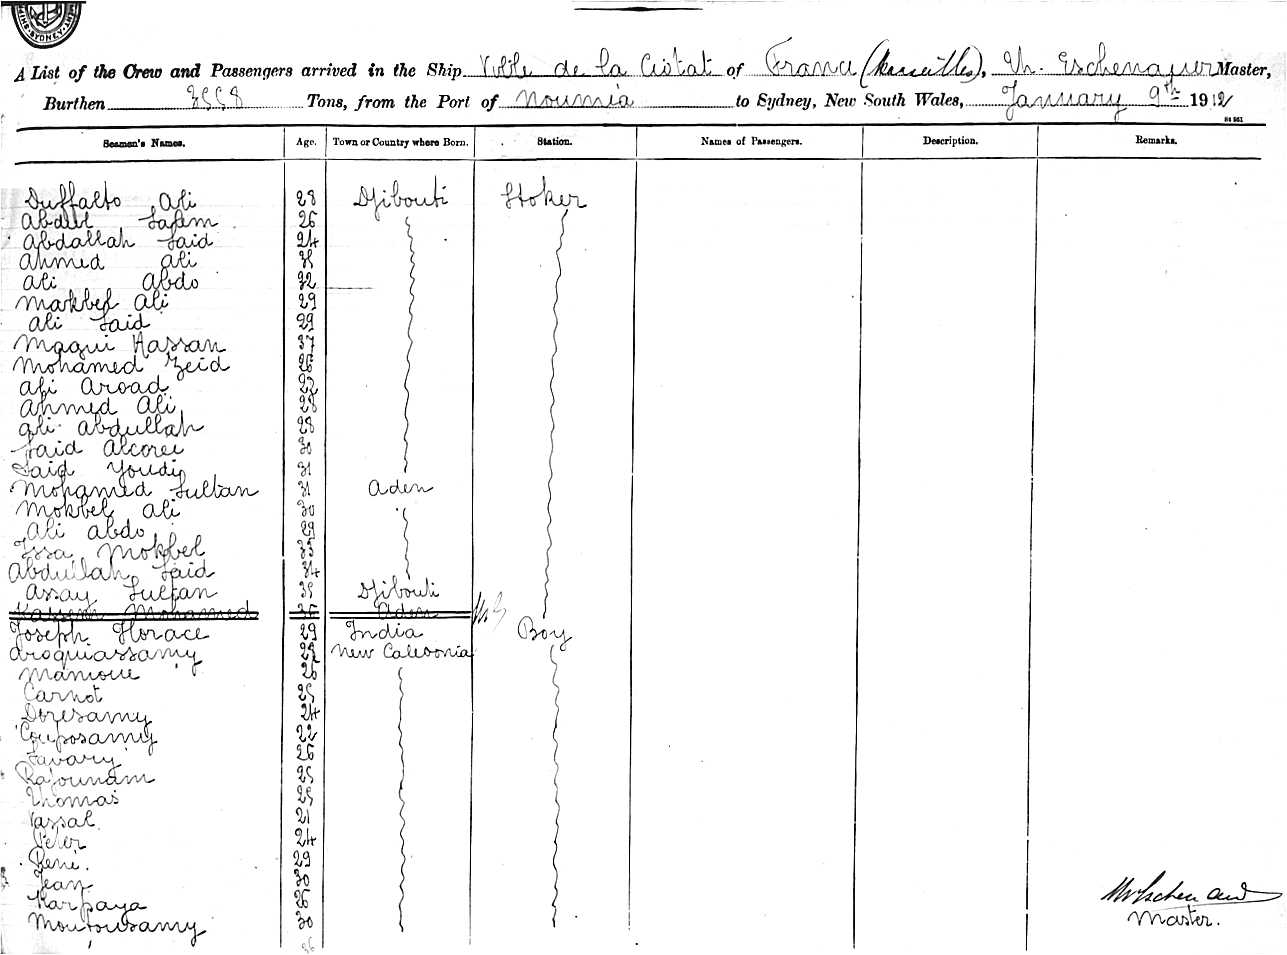 SYDNEY
A List of the Crew and Passengers arrived in the Ship Ville de la Ciotat of France (Marseilles), Master,
Burthen Tons, from the Port of Noumia to Sydney, New South Wales, January 9th 1912
Seamen's Names. Age. Town or Country where Born. Station. Names of Passengers. Description. Remarks.
Duffalto Ali 28 Djibouti Stoker
Abdul Salem 26
Abdallah Said 24
Ahmed Ali
Ali Abdo 32
Makbel Ali 29
Ali Said 29
Maqui Hassan 37
Mohamed Zeid 26
Ali Aroad 22
Ahmed Ali 28
Ali Abdullah 28
Said Alcorei 30
Said Youdi 31
Mohamed Sultan 31 Aden
Mokbel Ali 30
Ali Abdo 29
Issa Mokbel 35
Abdullah Said 34
Assay Sultan 35 Djibouti
Mohamed 36 Aden
Joseph Horace 29 India Boy
Aroquiassamy New Caledonia
26
Carnot 25
Doresamy 24
Couposamy 22
Savary 26
Rajounam 25
Thomas 25
Vassal 21
Peter 24
René. 29
Jean 30
Karpaya 26
Moutousamy 30
Master.